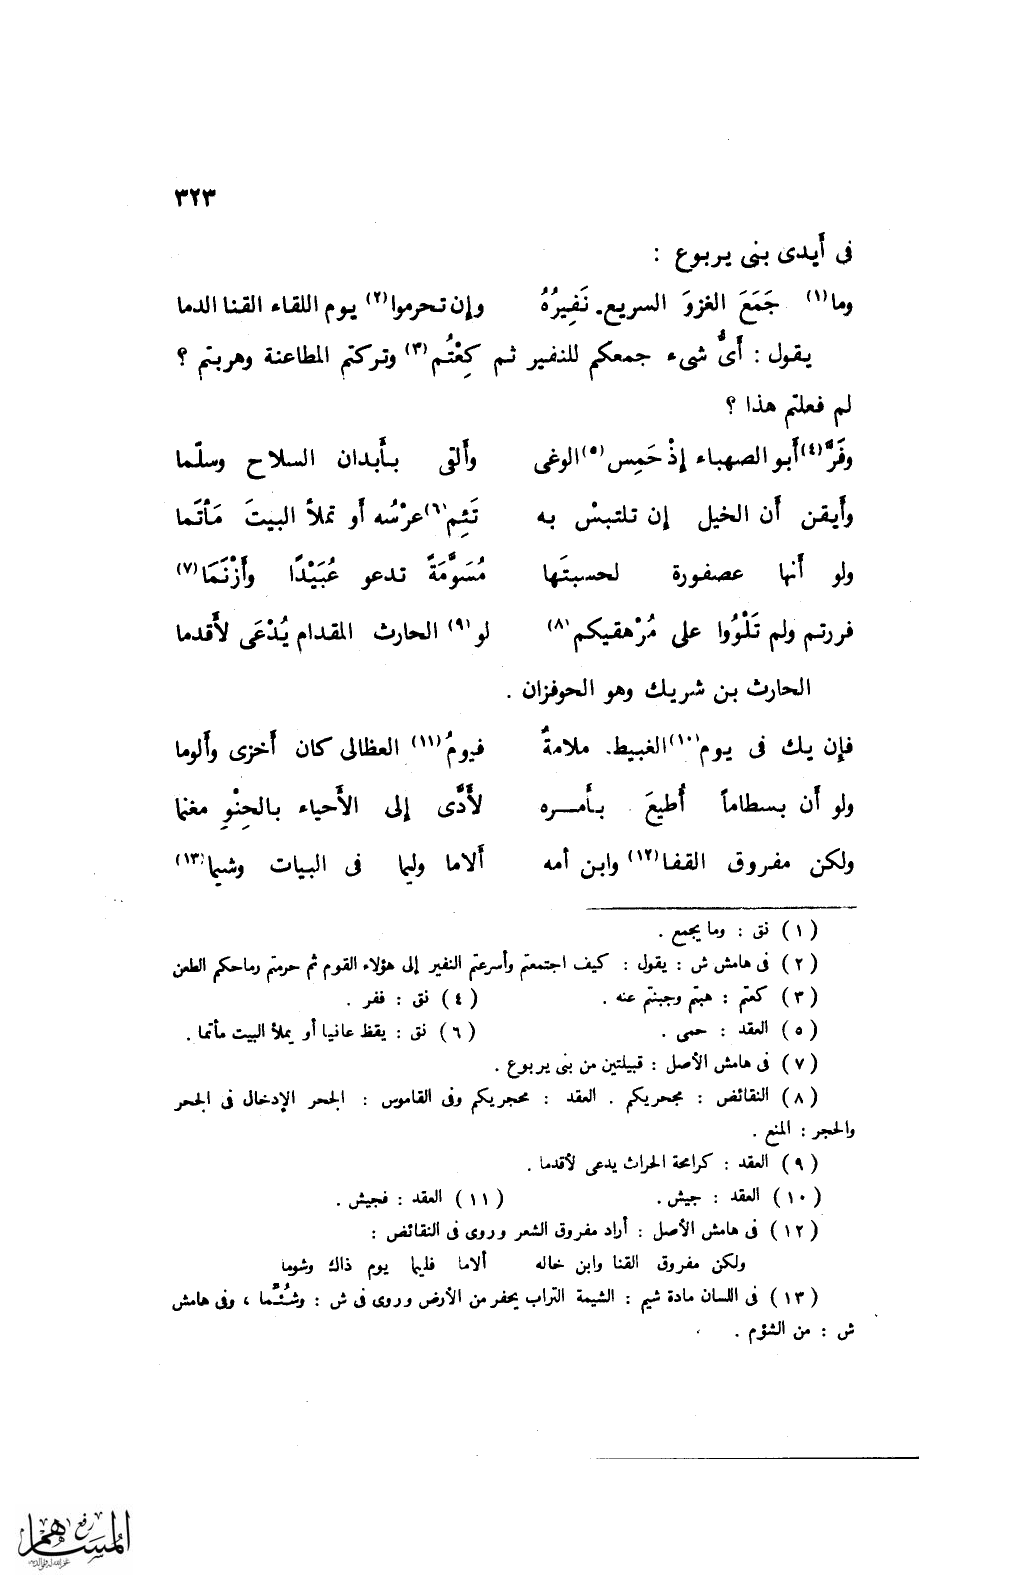 ٣٢٣
فى أَيدى بنى يربوع :
وما(١) جَمَعَ الغزوَ السريع. نَفِيرُهُ وإن تحرموا(٢) يوم اللقاء القنا الدما
يقول : أَىُّ شىء جمعكم للنفير ثم كِعْتُم(٣) وتركتم المطاعنة وهربتم ؟
لم فعلتم هذا ؟
وفَرَّ(٤) أَبو الصهباء إذْ حَمِس(٥) الوغى وأَلقى بأَبدان السلاح وسلّما
وأَيقن أَن الخيل إن تلتبسْ به تَئِم(٦) عرْسُه أَو تملأ البيتَ مَأتَما
ولو أَنها عصفورة لحسبتَها مُسَوَّمَةً تدعو عُبَيْدًا وأَزْنَمَا(٧)
فررتم ولم تَلْوُوا على مُرْهقيكم(٨) لو(٩) الحارث المقدام يُدْعَى لأَقدما
الحارث بن شريك وهو الحوفزان .
فإن يك فى يوم(١٠) الغبيط. ملامةٌ فيومُ(١١) العظالى كان أَخزى وأَلوما
ولو أَن بسطاماً أُطيعَ بأمره لأَدَّى إلى الأَحياء بالحِنْوِ مغنما
ولكن مفروق القفا(١٢) وابن أمه أَلاما وليما فى البيات وشيما(١٣)
(١) نق : وما يجمع .
(٢) فى هامش ش : يقول : كيف اجتمعتم وأسرعتم النفير إلى هؤلاء القوم ثم حرمتم رماحكم الطعن
(٣) كعتم : هبتم وجبنتم عنه . (٤) نق : ففر .
(٥) العقد : حمى . (٦) نق : يقظ عانيا أو يملأ البيت مأتما .
(٧) فى هامش الأصل : قبيلتين من بنى يربوع .
(٨) النقائض : مجحريكم . العقد : محجريكم وفى القاموس : الجحر الإدخال فى الجحر
والحجر : المنع .
(٩) العقد : كرامحة الحراث يدعى لأقدما .
(١٠) العقد : جيش . (١١) العقد : فجيش .
(١٢) فى هامش الأصل : أراد مفروق الشعر وروى فى النقائض :
ولكن مفروق القنا وابن خاله ألاما فليما يوم ذاك وشوما
(١٣) فى اللسان مادة شيم : الشيمة التراب يحفر من الأرض وروى فى ش : وشُئِّما ، وفى هامش
ش : من الشؤم .
رفع
المساهم